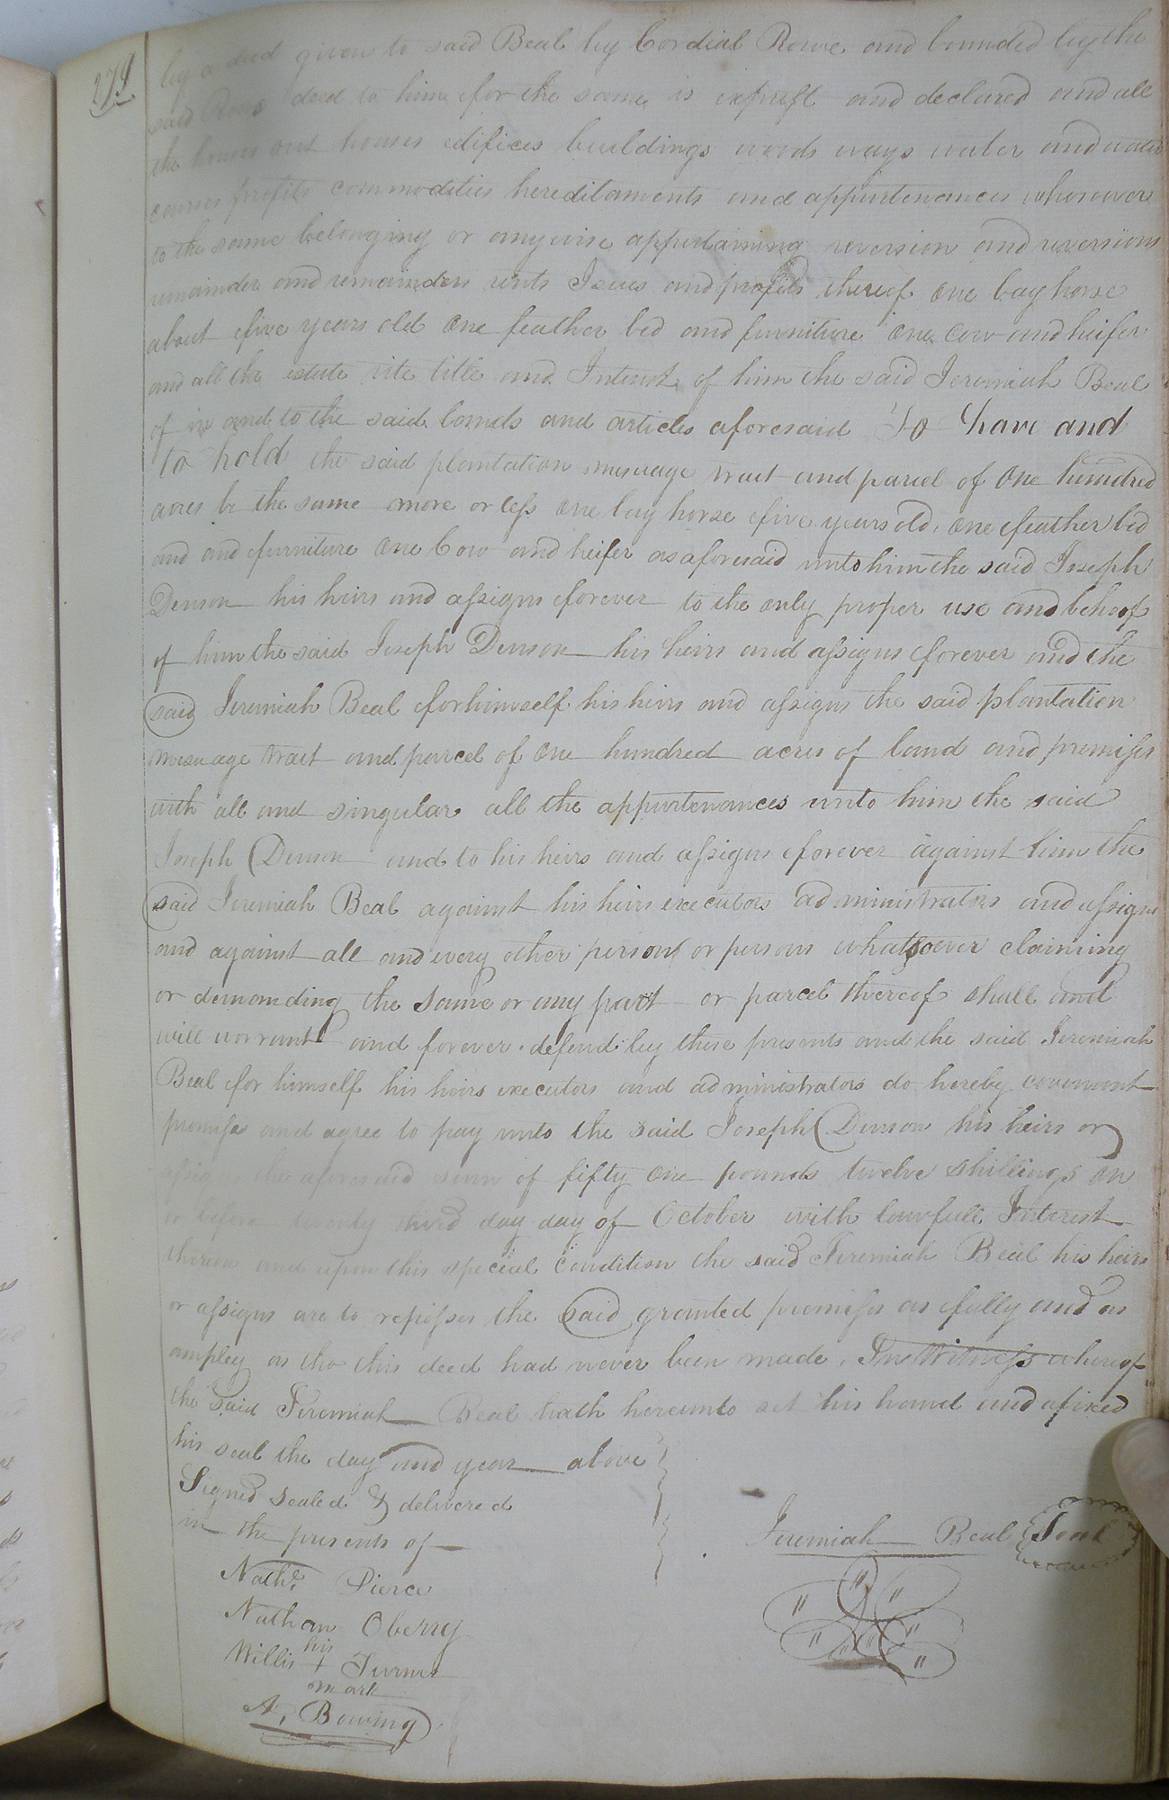 279
by a deed given to said Beal by Cordial Rowe and bounded by the
said Rows deed to him for the same is exprest and declared and all
the houses out houses edifices buildings woods ways water and water
courses profits commodities hereditaments and appurtenances whosoever
to the same belonging or anywise appertaining reversion and reversions
remainder and remainders rents Issues and profits thereof one bay horse
about five years old one feather bed and furniture one cow and heifer
and all the estate rite title and Interest of him the said Jeremiah Beal
of in and to the said lands and articles aforesaid To have and
to hold the said plantation mesuage tract and parcel of one hundred
acres be the same more or less one bay horse five years old, one feather bed
and and furniture one Cow and heifer as aforesaid unto him the said Joseph
Denson his heirs and assigns forever to the only proper use and behoof
of him the said Joseph Denson his heirs and assigns forever and the
said Jeremiah Beal for himself his heirs and assigns the said plantation
mesuage tract and parcel of one hundred acres of land and premises
with all and singular all the appurtenances unto him the said
Joseph Denson and to his heirs and assigns forever against him the
said Jeremiah Beal against his heirs executors administrators and assigns
and against all and every other person or persons whatsoever claiming
or demanding the same or any part or parcel thereof shall and
will warrant and forever defend by these presents and the said Jeremiah
Beal for himself his heirs executors and administrators do hereby covenant
promise and agree to pay unto the said Joseph Denson his heirs or
assigns the aforesaid sum of fifty one pounds twelve shillings on
or before twenty third day day of October with lawfull Interest
thereon and upon this special condition the said Jeremiah Beal his heirs
or assigns are to repossess the said granted premises as fully and as
ampley as tho this deed had never been made. In Witness whereof
the said Jeremiah Beal hath hereunto set his hand and afixed
his seal the day and year above
Signed sealed & delivered
in the presents of
Jeremiah Beal Seal
Nathl. Pierce
Nathan Oberry
his
Willis + Turner
mark
A. Bowing